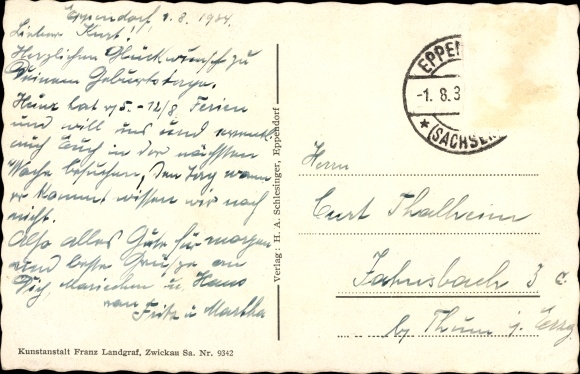 Eppendorf, 1.8.1934.
Lieber Kurt!
Herzlichen Glückwunsch zu
Deinem Geburtstage.
Heinz hat v. 5.-12/8 Ferien
und will uns und
auch Euch in der nächsten
Woche besuchen, den Tag wann
er kommt wissen wir noch
nicht.
Also alles Gute für morgen
und beste Grüße an
Dich, Mariechen u. Hans
von
Fritz u Martha
Kunstanstalt Franz Landgraf, Zwickau Sa. Nr. 9342
Verlag: H. A. Schlesinger, Eppendorf
EPPEN
-1. 8. 3
* (SACHSEN
Herrn
Curt Thalheim
Jahnsbach 3 c.
b/ Thum i. Erzg